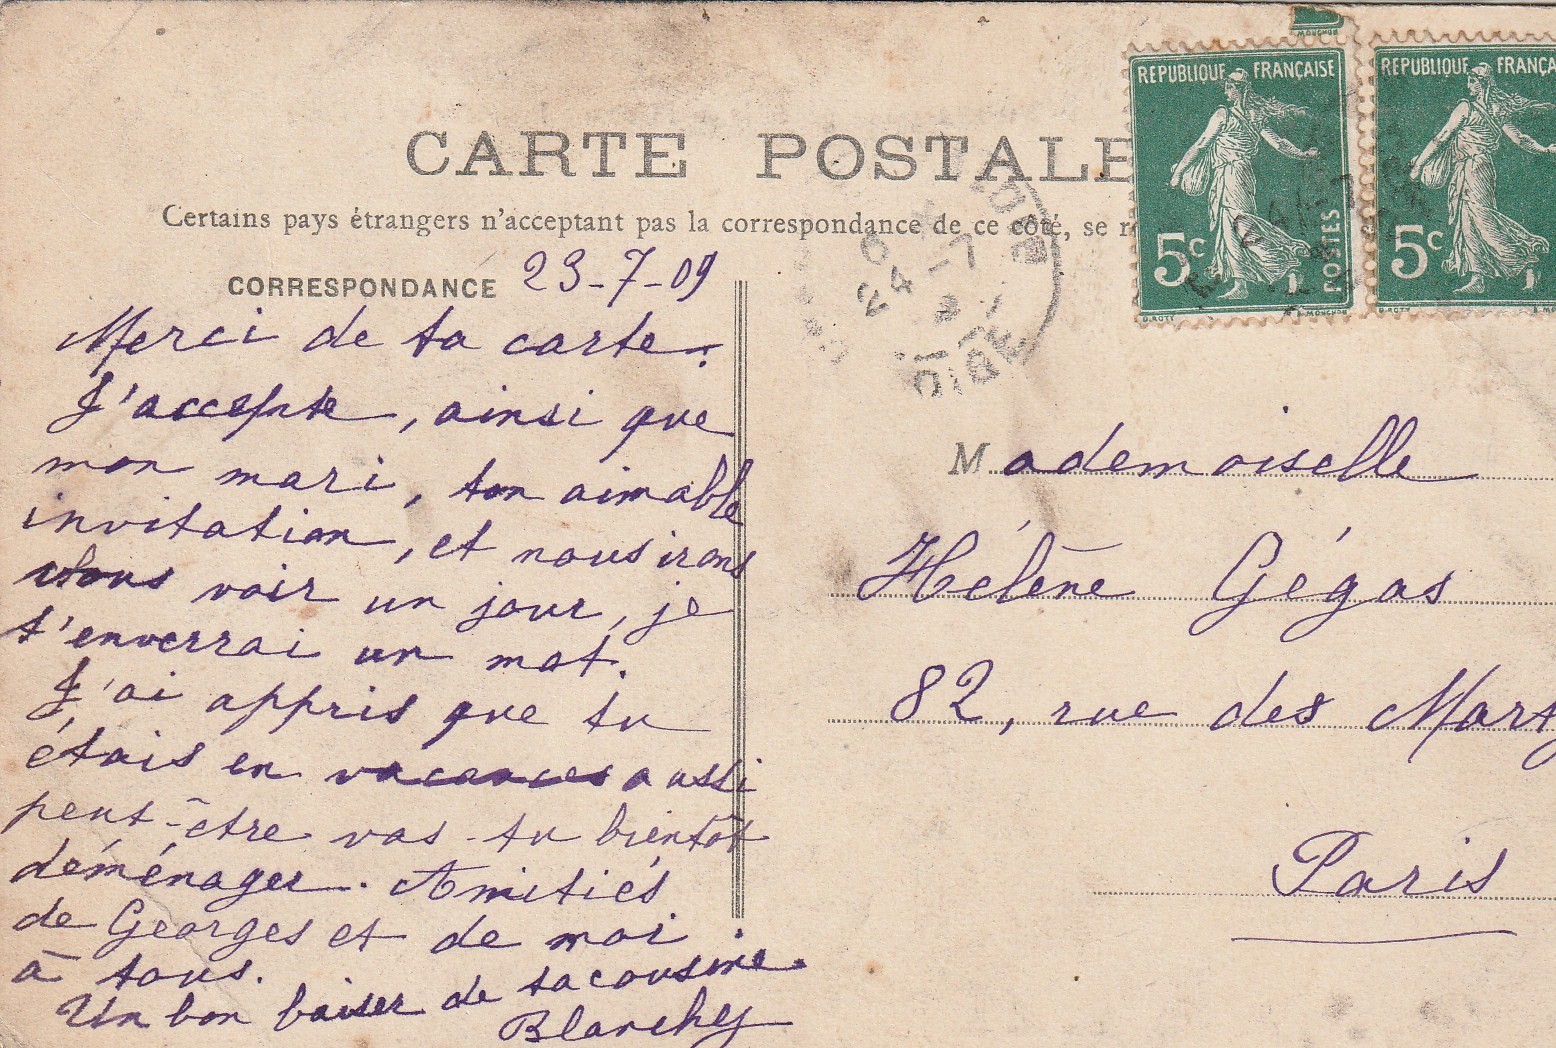 CARTE POSTALE
Certains pays étrangers n'acceptant pas la correspondance de ce côté, se
CORRESPONDANCE 23-7-09
Merci de ta carte.
J'accepte, ainsi que
mon mari, ton aimable
invitation, et nous irons
vous voir un jour, je
t'enverrai un mot.
J'ai appris que tu
étais en vacances aussi
peut-être vas-tu bientôt
déménager. Amitiés
de Georges et de moi
à tous.
Un bon baiser de ta cousine.
Blanche
REPUBLIQUE FRANÇAISE
5c
POSTES
O. ROTY E. MOUCHON
REPUBLIQUE FRANÇA
5c
O. ROTY E. MO
MOUCHON
24 -7
Mademoiselle
Hélène Gégas
82, rue des Marty
Paris